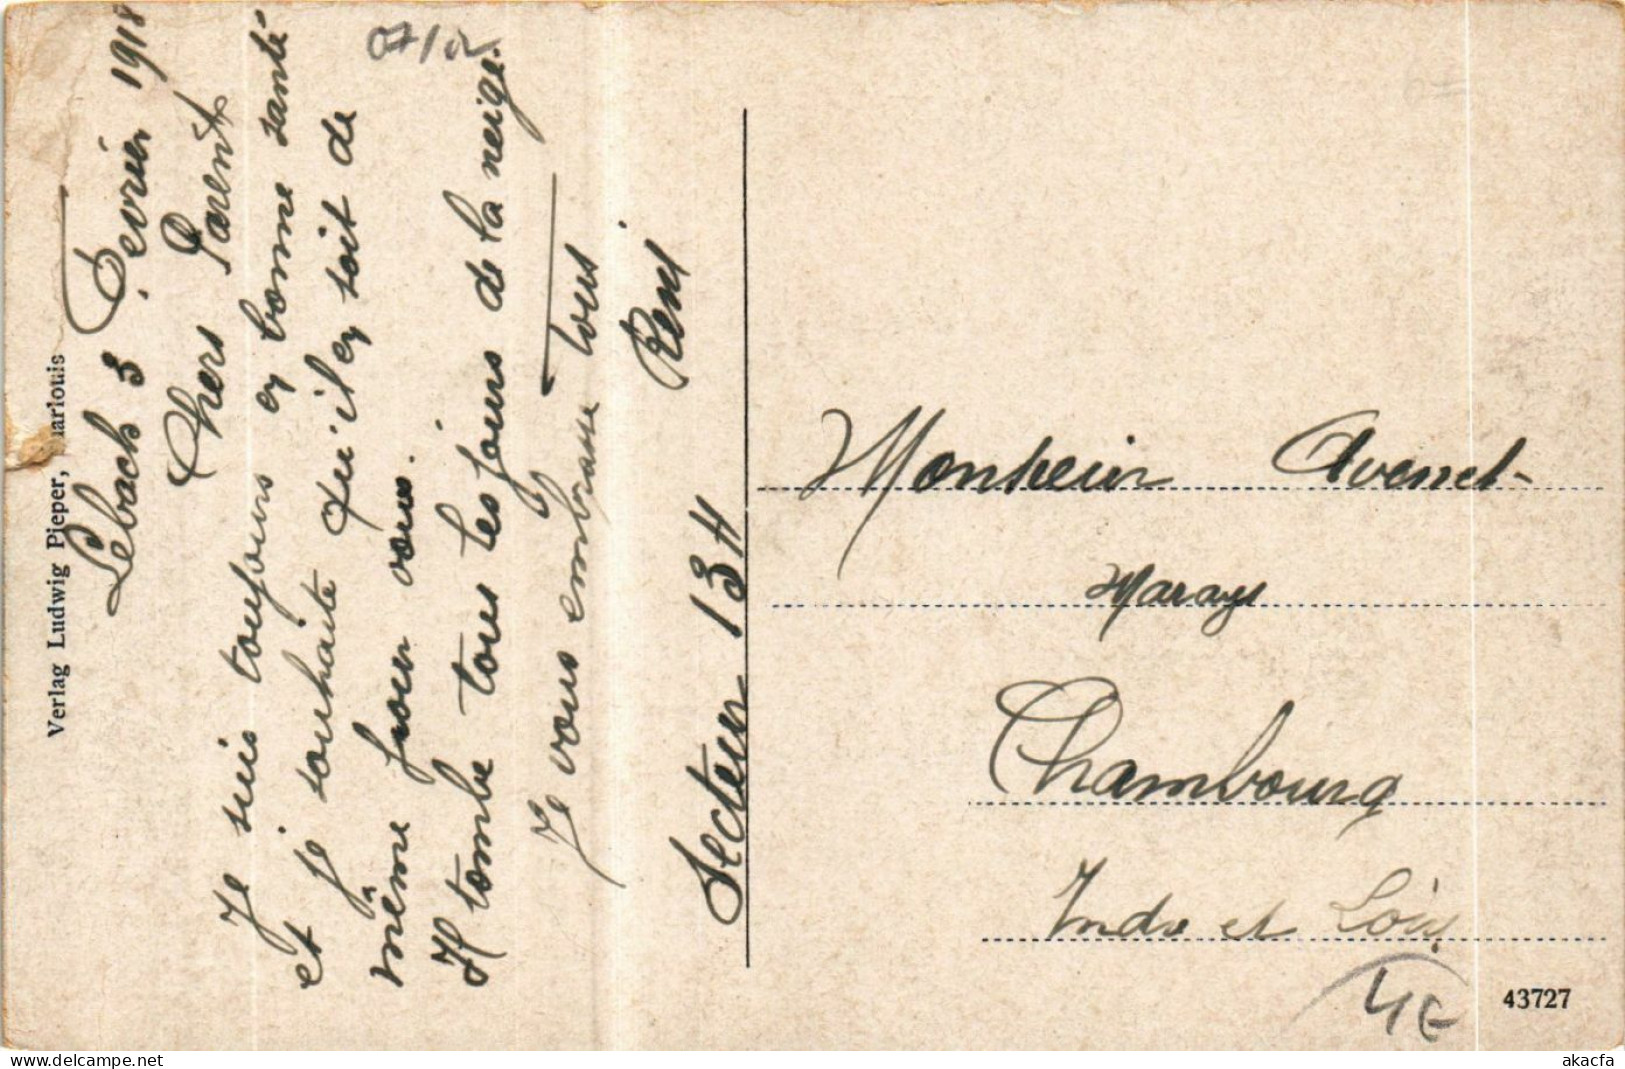 Verlag Ludwig Pieper, arlouis
Lebach 3 Fevrier 191
Chers Parent
Je suis toujours en bonne santé
et je souhaite qu'il en soit de
même pour vous.
Il tombe tous les jours de la neige.
Je vous embrasse tous
René
Secteur 134
07/02
Monsieur Avenet
Marays
Chambourg
Indre et Loire
4€
43727
akacfa
www.delcampe.net